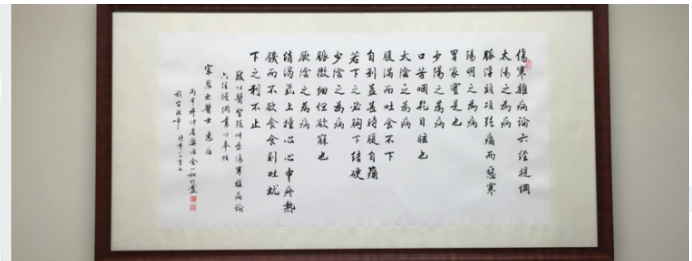 傷寒雜病論六經提綱
太陽之為病
脈浮頭項強痛而惡寒
陽明之為病
胃家實是也
少陽之為病
口苦咽乾目眩也
太陰之為病
腹滿而吐食不下
自利益甚時腹自痛
若下之必胸下結硬
少陰之為病
脈微細但欲寐也
厥陰之為病
消渴氣上撞心心中疼熱
饑而不欲食食則吐蚘
下之利不止
錄以醫聖張仲景傷寒雜病論
六經提綱書以奉
醫士惠存
丙申